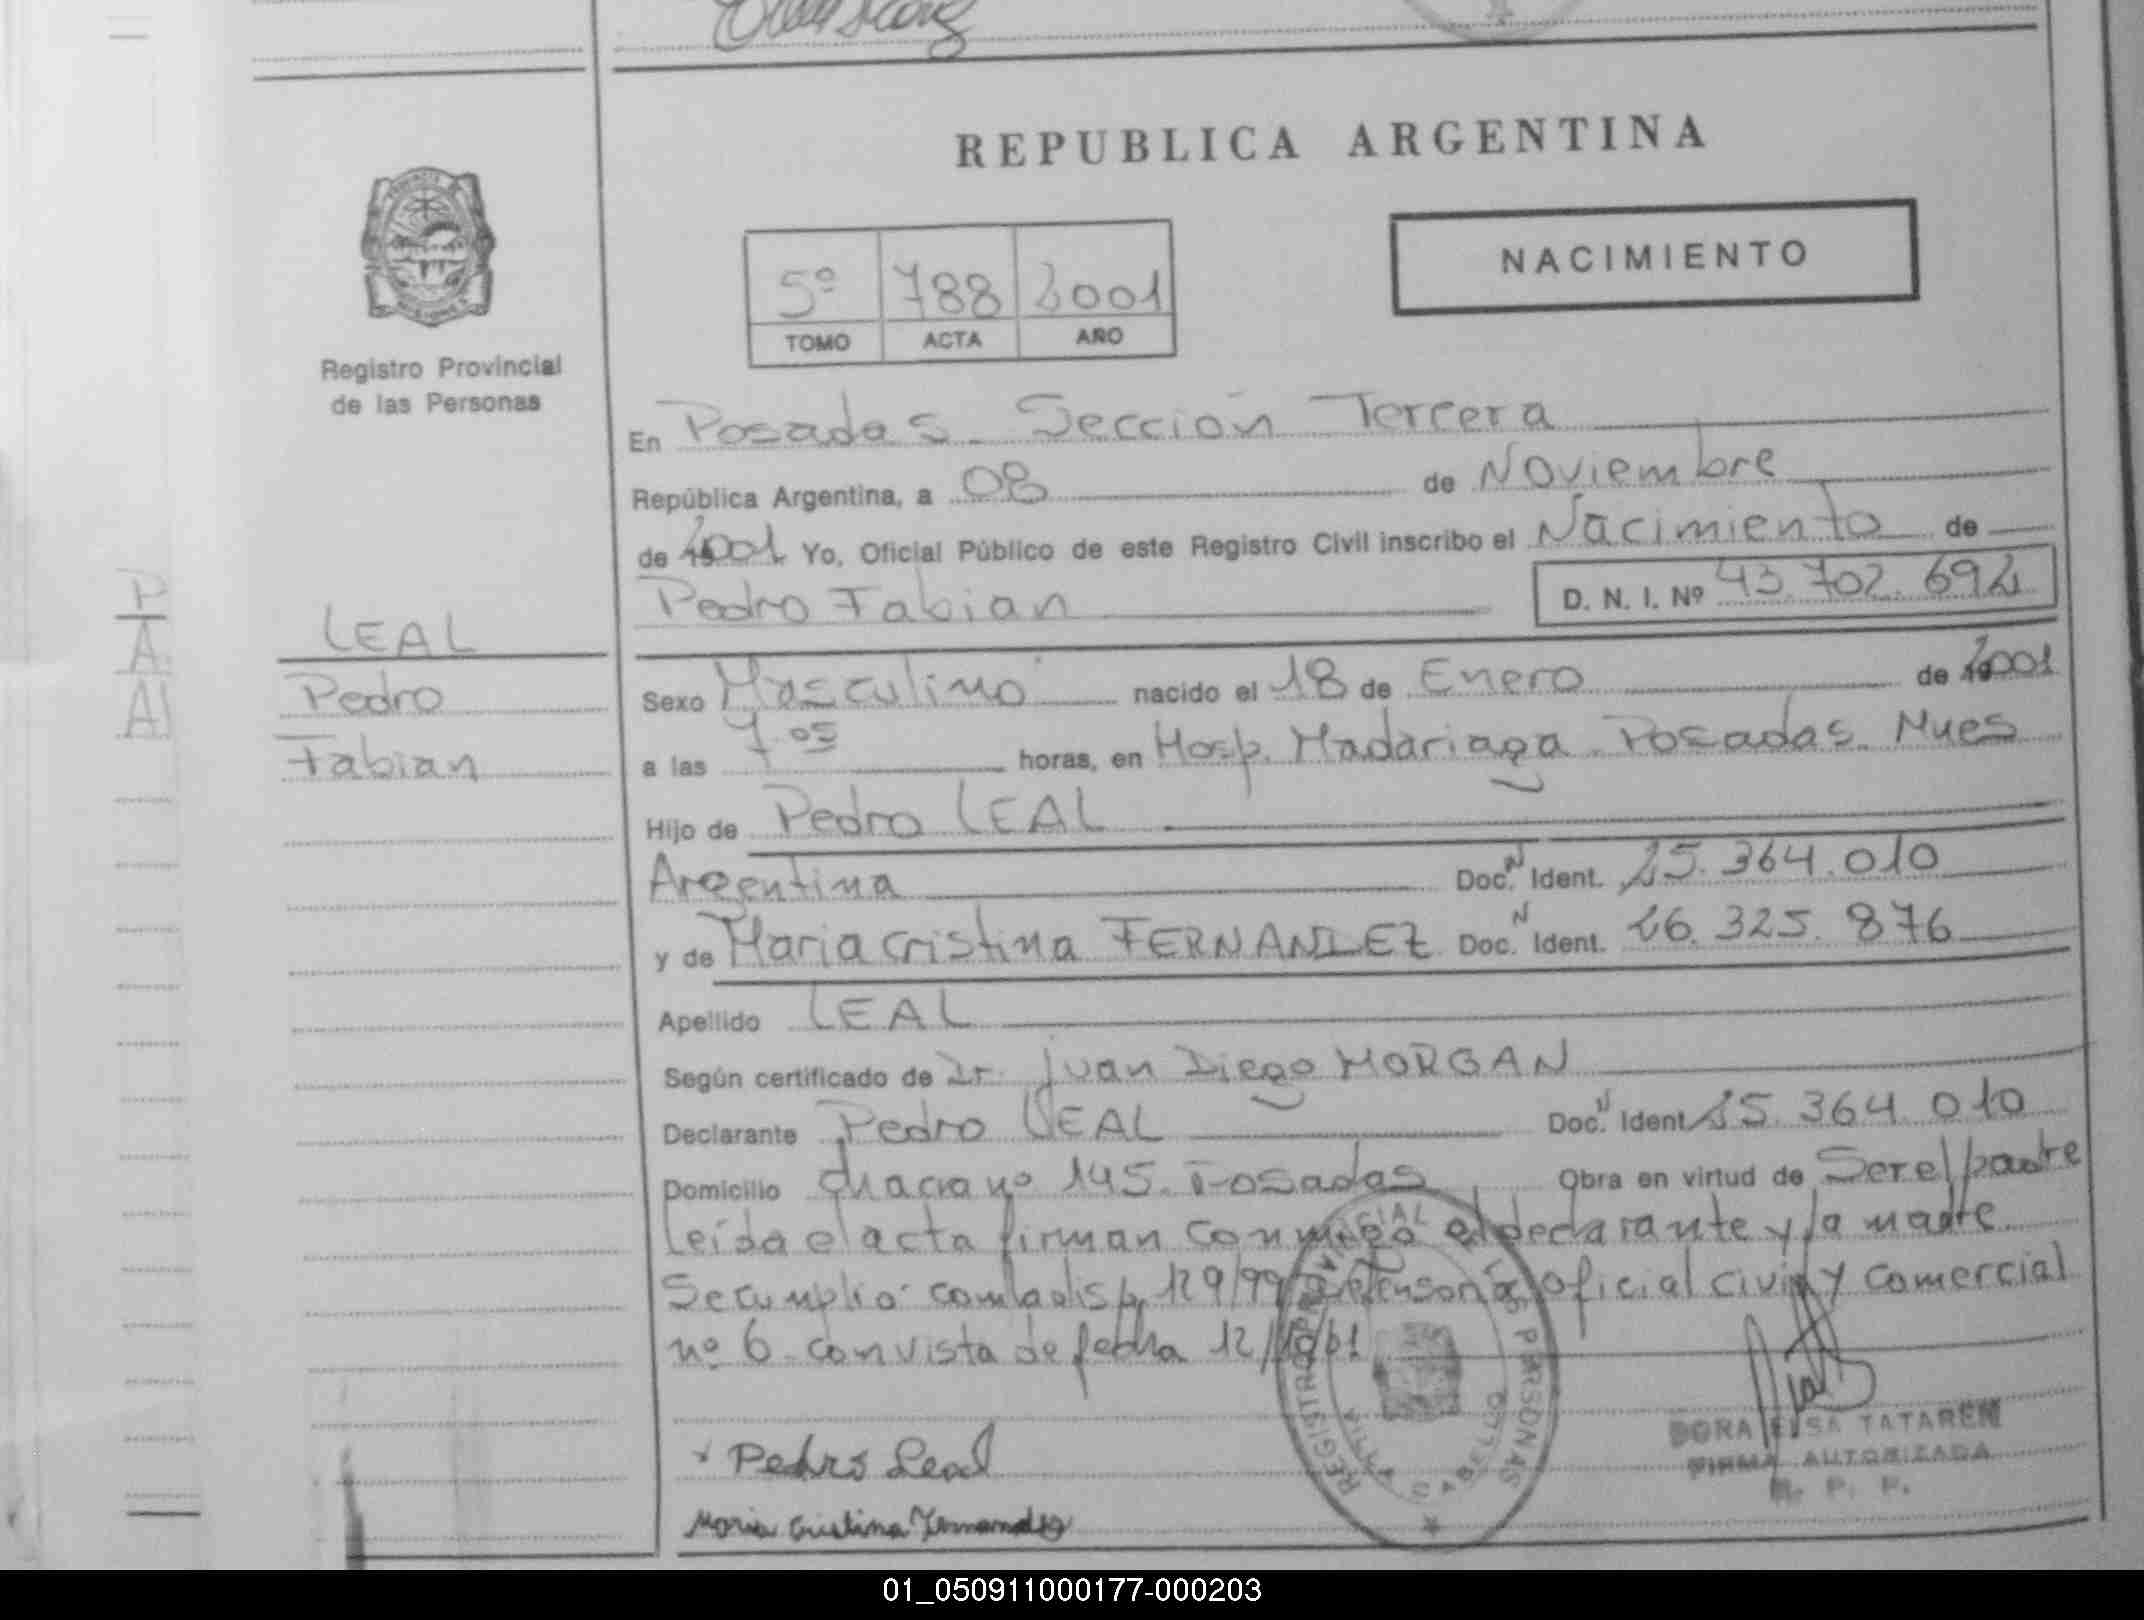 REPUBLICA ARGENTINA
NACIMIENTO
5º 788 2001
TOMO ACTA AÑO
Registro Provincial
de las Personas
LEAL
Pedro
Fabian
P
A
A
En Posadas. Sección Tercera
República Argentina, a 08 de Noviembre
de 2001 Yo, Oficial Público de este Registro Civil inscribo el Nacimiento de
Pedro Fabian D. N. I. Nº 43.702.692
Sexo Masculino nacido el 18 de Enero de 2001
a las 7.05 horas, en Hosp. Madariaga. Posadas. Mnes
Hijo de Pedro LEAL
Argentina Doc. N Ident. 25.364.010
y de Maria Cristina FERNANDEZ Doc. N Ident. 26.325.876
Apellido LEAL
Según certificado de Dr. Juan Diego MORGAN
Declarante Pedro LEAL Doc. N Ident. 25.364.010
Domicilio chacra nº 145. Posadas Obra en virtud de Ser el padre
Leída el acta firman conmigo el declarante y la madre
Se cumplió con la disp. 129/99 Defensoria Oficial civil y comercial
nº 6 con vista de fecha 12/
REGISTRO PROVINCIAL DE LAS PERSONAS
Pedro Leal
Maria Cristina Fernandez
DORA ELSA TATAREN
FIRMA AUTORIZADA
R. P. P.
01_050911000177-000203